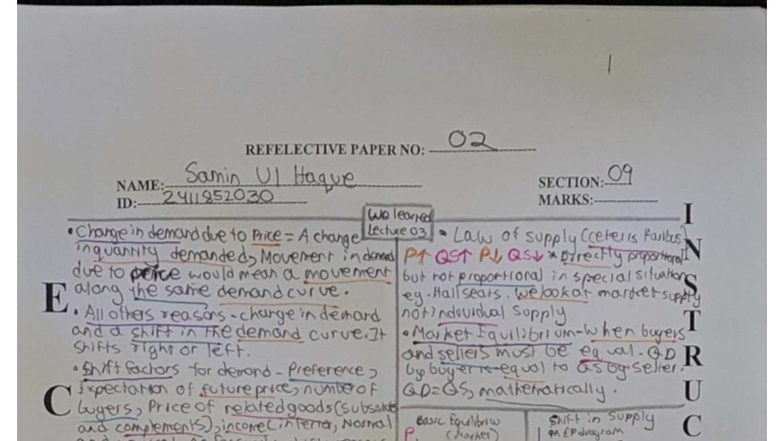 REFELECTIVE PAPER NO: 02
NAME: Samin Ul Haque
SECTION: 09
ID: 2411852030
MARKS:
We learned
Lecture 03
• Change in demand due to Price = A change
in quantity demanded, Movement in demand
due to price would mean a movement
along the same demand curve.
• All others reasons - change in demand
and a shift in the demand curve. It
shifts right or left.
• Shift factors for demand - Preference,
Expectation of future price, number of
buyers, Price of related goods (Subsitutes
and complements), income (inferior, Normal
• Law of supply (ceteris Paribus)
P↑ QS↑ P↓ QS↓ * Directly proportional
but not proportional in special situations
eg. Hall seats. we look at market supply
not individual supply
• Market Equilibrium - When buyers
and sellers must be equal. QD
by buyer is equal to QS by seller.
QD=QS, mathematically.
Basic Equilibrium
(market)
P
Shift in Supply
on EP diagram
E
C
I
N
S
T
R
U
C